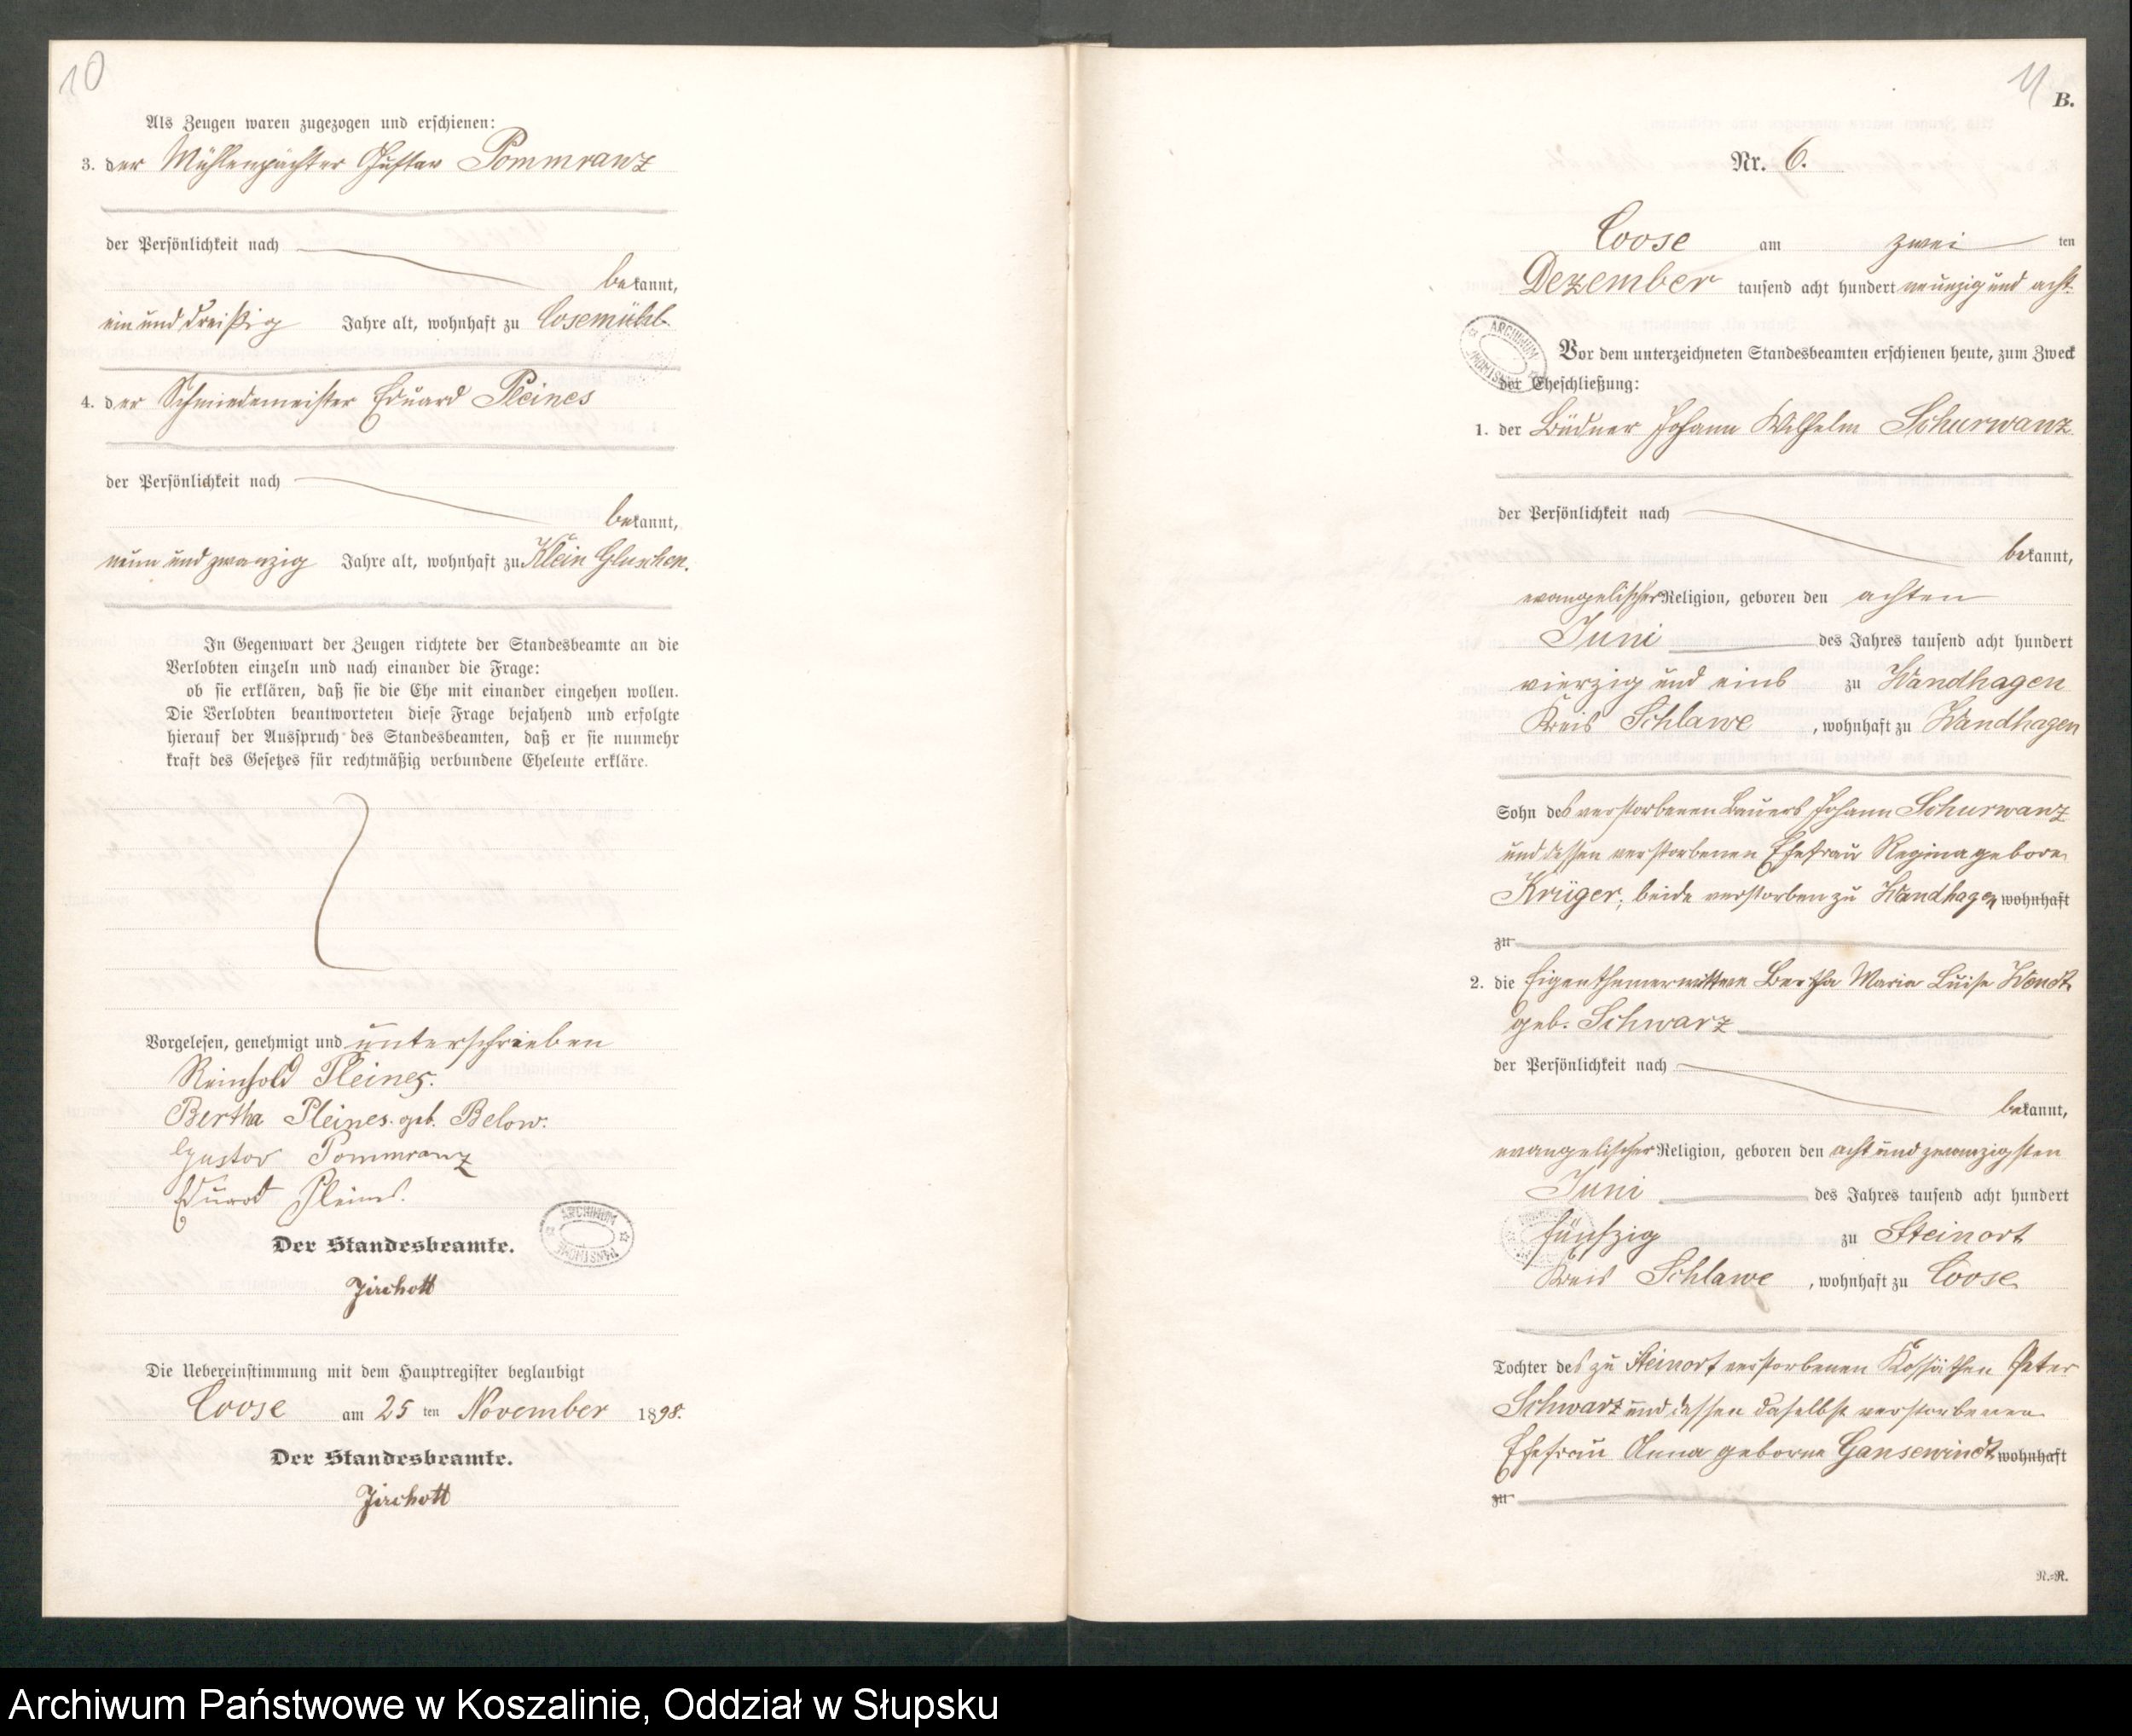 10
Als Zeugen waren zugezogen und erschienen:
3. der Mühlenpächter Gustav Pommranz
der Persönlichkeit nach
bekannt,
ein und dreißig Jahre alt, wohnhaft zu Cosemühl.
4. der Schmiedemeister Eduard Pleines
der Persönlichkeit nach
bekannt,
neun und zwanzig Jahre alt, wohnhaft zu Klein Gluschen.
In Gegenwart der Zeugen richtete der Standesbeamte an die
Verlobten einzeln und nach einander die Frage:
ob sie erklären, daß sie die Ehe mit einander eingehen wollen.
Die Verlobten beantworteten diese Frage bejahend und erfolgte
hierauf der Ausspruch des Standesbeamten, daß er sie nunmehr
kraft des Gesetzes für rechtmäßig verbundene Eheleute erkläre.
Vorgelesen, genehmigt und unterschrieben
Reinhold Pleines.
Bertha Pleines geb. Below.
Gustav Pommranz
Eduard Pleines.
Der Standesbeamte.
Jirchott
ARCHIWUM PAŃSTWOWE
Die Uebereinstimmung mit dem Hauptregister beglaubigt
Coose am 25 ten November 1898.
Der Standesbeamte.
Jirchott
11
B.
Nr. 6.
Coose am zwei ten
Dezember tausend acht hundert neunzig und acht
ARCHIWUM PAŃSTWOWE
Vor dem unterzeichneten Standesbeamten erschienen heute, zum Zweck
der Eheschließung:
1. der Büdner Johann Wilhelm Schurwanz
der Persönlichkeit nach
bekannt,
evangelischer Religion, geboren den achten
Juni des Jahres tausend acht hundert
vierzig und eins zu Wandhagen
Kreis Schlawe, wohnhaft zu Wandhagen
Sohn des verstorbenen Bauers Johann Schurwanz
und dessen verstorbenen Ehefrau Regina gebore
Krüger, beide verstorben zu Wandhagen wohnhaft
zu
2. die Eigenthümerwittwe Bertha Maria Luise Wendt
geb. Schwarz
der Persönlichkeit nach
bekannt,
evangelischer Religion, geboren den acht und zwanzigsten
Juni des Jahres tausend acht hundert
fünfzig zu Steinort
Kreis Schlawe, wohnhaft zu Coose
Tochter des zu Steinort verstorbenen Kossäthen Peter
Schwarz und dessen daselbst verstorbenen
Ehefrau Anna geborne Gansewindt wohnhaft
zu
R.-R.
Archiwum Państwowe w Koszalinie, Oddział w Słupsku